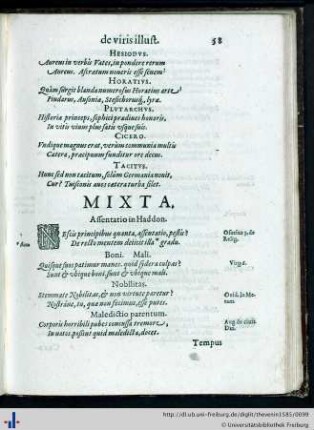 de viris illust. 58
HESIODVS.
Aureus in verbis Vates, in pondere rerum
Aureus. Ascræum noueris esse senem?
HORATIVS.
Quàm surgit blanda numerosus Horatius arte
Pindarus, Ausoniæ, Stesichorusq́, lyræ.
PLVTARCHVS.
Historiæ princeps, sophiæ
In vitis vium plus satis vsque suis.
CICERO.
Vndique magnus erat, verùm communia multis
Cætera, præcipuum funditur ore decus.
TACITVS.
Hunc sed non tacitum, solùm Germania nouit,
Cur? Tuisconis auos cætera turba silet.
MIXTA,
Assentatio in Haddon.
NEscis principibus quanta, assentatio, pestis?
De recto mentem deiicit illa* gradu.
Osorius 3. de
Relig.
Boni. Mali.
Quisque suos patimur manes. quid sydera culpas?
Sunt & vbique boni, sunt & vbique mali.
Virgil.
Nobilitas.
Stemmate Nobilitas, & non virtute paretur?
Nostráne, tu, quæ non fecimus, esse putes.
Ouid. in Me-
tam.
Maledictio parentum.
Corporis horribili pubes concussa tremore,
In natos possint quid maledicta, docet.
Aug. de ciuit.
Dei.
Tempus
http://dl.ub.uni-freiburg.de/diglit/thevenin1585/0099
© Universitätsbibliothek Freiburg